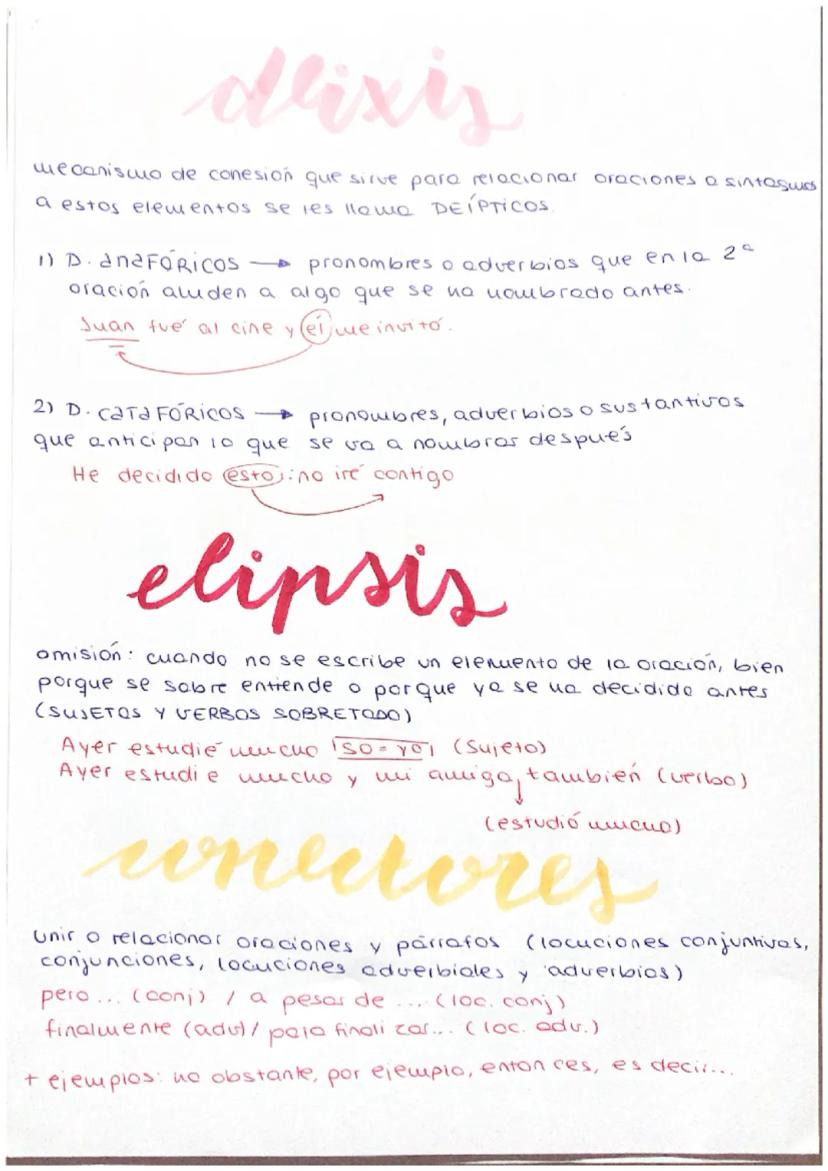 deixis
mecanismo de conesión que sirve para relacionar oraciones o sintagmas
a estos elementos se les llama DEÍPTICOS.
1) D. anaFÓRICOS → pronombres o adverbios que en la 2ª
oración aluden a algo que se ha nombrado antes.
Juan fué al cine y él me invitó.
2) D. cataFÓRICOS → pronombres, adverbios o sustantivos
que anticipan lo que se va a nombrar después
He decidido esto: no iré contigo
elipsis
omisión: cuando no se escribe un elemento de la oración, bien
porque se sobre entiende o porque ya se ha decidido antes
(SUJETOS Y VERBOS SOBRETODO)
Ayer estudié mucho SO = YO (sujeto)
Ayer estudié mucho y mi amiga, también (verbo)
(estudió mucho)
conectores
unir o relacionar oraciones y párrafos (locuciones conjuntivas,
conjunciones, locuciones adverbiales y adverbios)
pero... (conj) / a pesar de ... (loc. conj)
finalmente (adv) / para finalizar... (loc. adv.)
+ ejemplos: no obstante, por ejemplo, entonces, es decir...